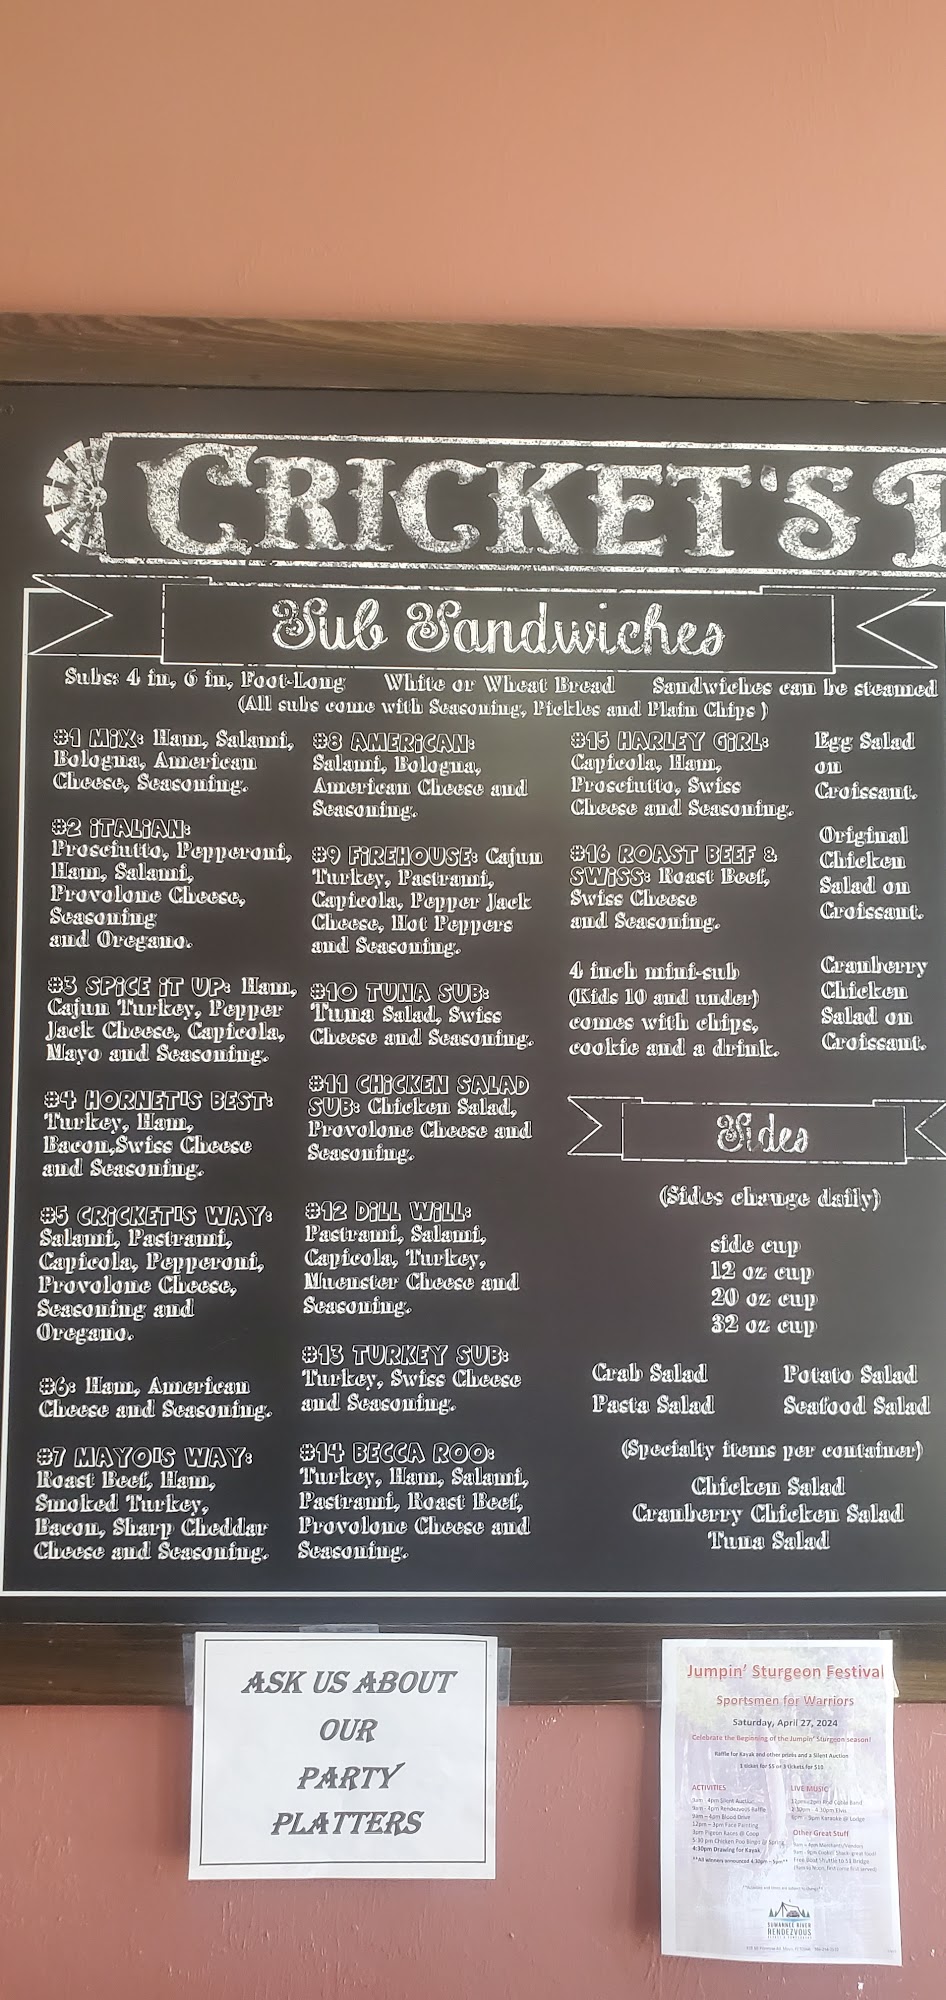 CRICKET'S
Sub Sandwiches
Subs: 4 in, 6 in, Foot-Long White or Wheat Bread Sandwiches can be steamed
(All subs come with Seasoning, Pickles and Plain Chips )
#1 MIX: Ham, Salami,
Bologna, American
Cheese, Seasoning.
#2 ITALIAN:
Prosciutto, Pepperoni,
Ham, Salami,
Provolone Cheese,
Seasoning
and Oregano.
#3 SPICE IT UP: Ham,
Cajun Turkey, Pepper
Jack Cheese, Capicola,
Mayo and Seasoning.
#4 HORNET'S BEST:
Turkey, Ham,
Bacon,Swiss Cheese
and Seasoning.
#5 CRICKET'S WAY:
Salami, Pastrami,
Capicola, Pepperoni,
Provolone Cheese,
Seasoning and
Oregano.
#6: Ham, American
Cheese and Seasoning.
#7 MAYO'S WAY:
Roast Beef, Ham,
Smoked Turkey,
Bacon, Sharp Cheddar
Cheese and Seasoning.
#8 AMERICAN:
Salami, Bologna,
American Cheese and
Seasoning.
#9 FIREHOUSE: Cajun
Turkey, Pastrami,
Capicola, Pepper Jack
Cheese, Hot Peppers
and Seasoning.
#10 TUNA SUB:
Tuna Salad, Swiss
Cheese and Seasoning.
#11 CHICKEN SALAD
SUB: Chicken Salad,
Provolone Cheese and
Seasoning.
#12 DILL WILL:
Pastrami, Salami,
Capicola, Turkey,
Muenster Cheese and
Seasoning.
#13 TURKEY SUB:
Turkey, Swiss Cheese
and Seasoning.
#14 BECCA ROO:
Turkey, Ham, Salami,
Pastrami, Roast Beef,
Provolone Cheese and
Seasoning.
#15 HARLEY GIRL:
Capicola, Ham,
Prosciutto, Swiss
Cheese and Seasoning.
#16 ROAST BEEF &
SWISS: Roast Beef,
Swiss Cheese
and Seasoning.
4 inch mini-sub
(Kids 10 and under)
comes with chips,
cookie and a drink.
Egg Salad
on
Croissant.
Original
Chicken
Salad on
Croissant.
Cranberry
Chicken
Salad on
Croissant.
Sides
(Sides change daily)
side cup
12 oz cup
20 oz cup
32 oz cup
Crab Salad Potato Salad
Pasta Salad Seafood Salad
(Specialty items per container)
Chicken Salad
Cranberry Chicken Salad
Tuna Salad
ASK US ABOUT
OUR
PARTY
PLATTERS
Jumpin' Sturgeon Festival
Sportsmen for Warriors
Saturday, April 27, 2024
Celebrate the Beginning of the Jumpin' Sturgeon season!
Raffle for Kayak and other prizes and a Silent Auction
1 ticket for $5 or 3 tickets for $10
ACTIVITIES
9am - 4pm Silent Auction
9am - 4pm Rendezvous Raffle
9am - 4pm Blood Drive
12pm - 3pm Face Painting
3pm Pigeon Races @ Coop
5:30 pm Chicken Poo Bingo @ Spring
4:30pm Drawing for Kayak
**All winners announced 4:30pm - 5pm**
LIVE MUSIC
2:30pm - 4:30pm Elvis
6pm - 9pm Karaoke @ Lodge
Other Great Stuff
SUWANNEE RIVER
RENDEZVOUS